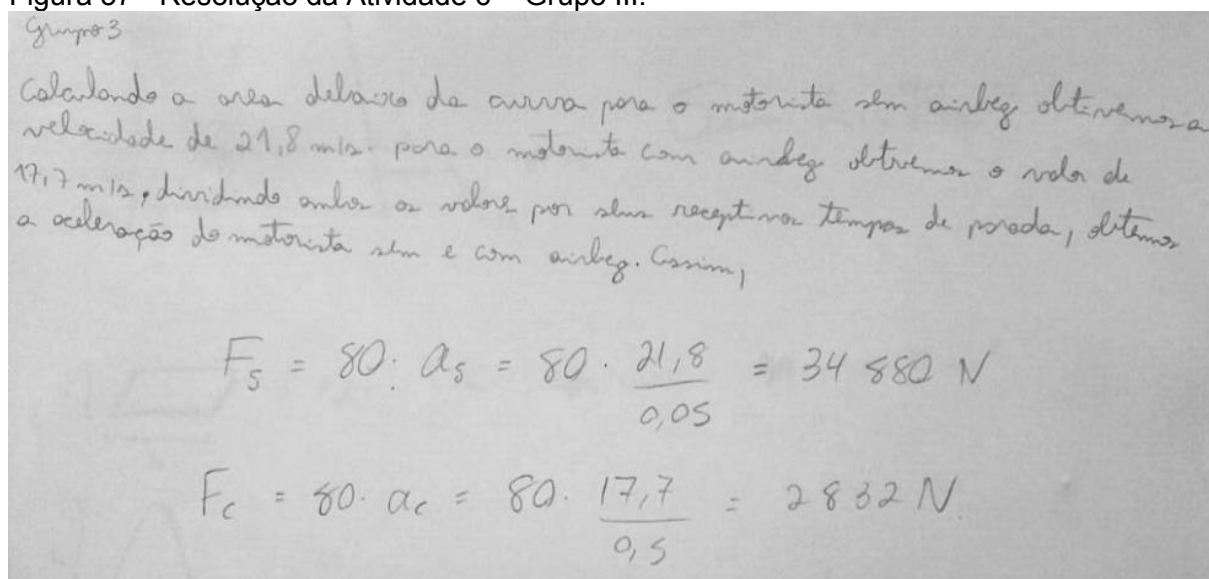 Figura 37 – Resolução da Atividade 6 – Grupo III.
Grupo 3
Calculando a area debaixo da curva para o motorista sem airbeg obtivemos a
velocidade de 21,8 m/s. para o motorista com airbeg obtivemos o valor de
17,7 m/s, dividindo ambos os valores por seus receptivos tempos de parada, obtemos
a aceleração do motorista sem e com airbeg. Assim,
F_s = 80 . a_s = 80 . 21,8 / 0,05 = 34 880 N
F_c = 80 . a_c = 80 . 17,7 / 0,5 = 2832 N.